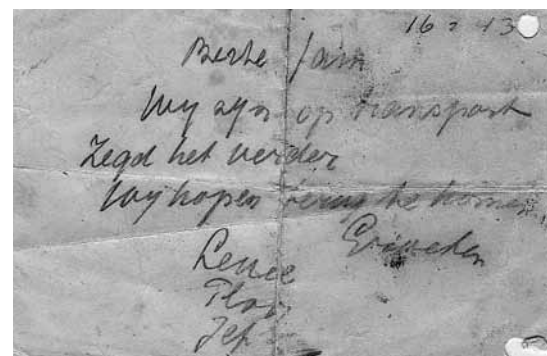 16 - 43
Beste fam
Wy zyn op transport
Zegd het verder
Wy hopen terug te komen
Lenie
Jef